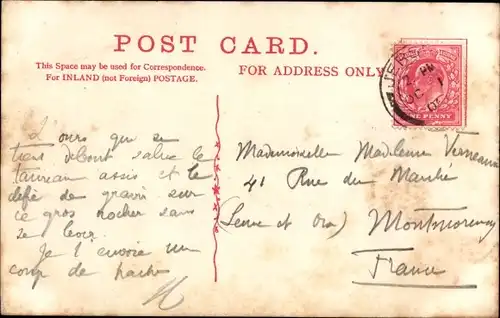 POST CARD.
This Space may be used for Correspondence.
For INLAND (not Foreign) POSTAGE.
FOR ADDRESS ONLY
JERSEY
PM
ONE PENNY
L'ours que se
tiens debout salue le
taureau assis et le
défie de gravir sur
ce gros rocher sans
se lever.
Je t'envoie un
coup de hache
Mademoiselle Madeleine Verneau
41 Rue du Marché
(Seine et Oise) Montmorency
France